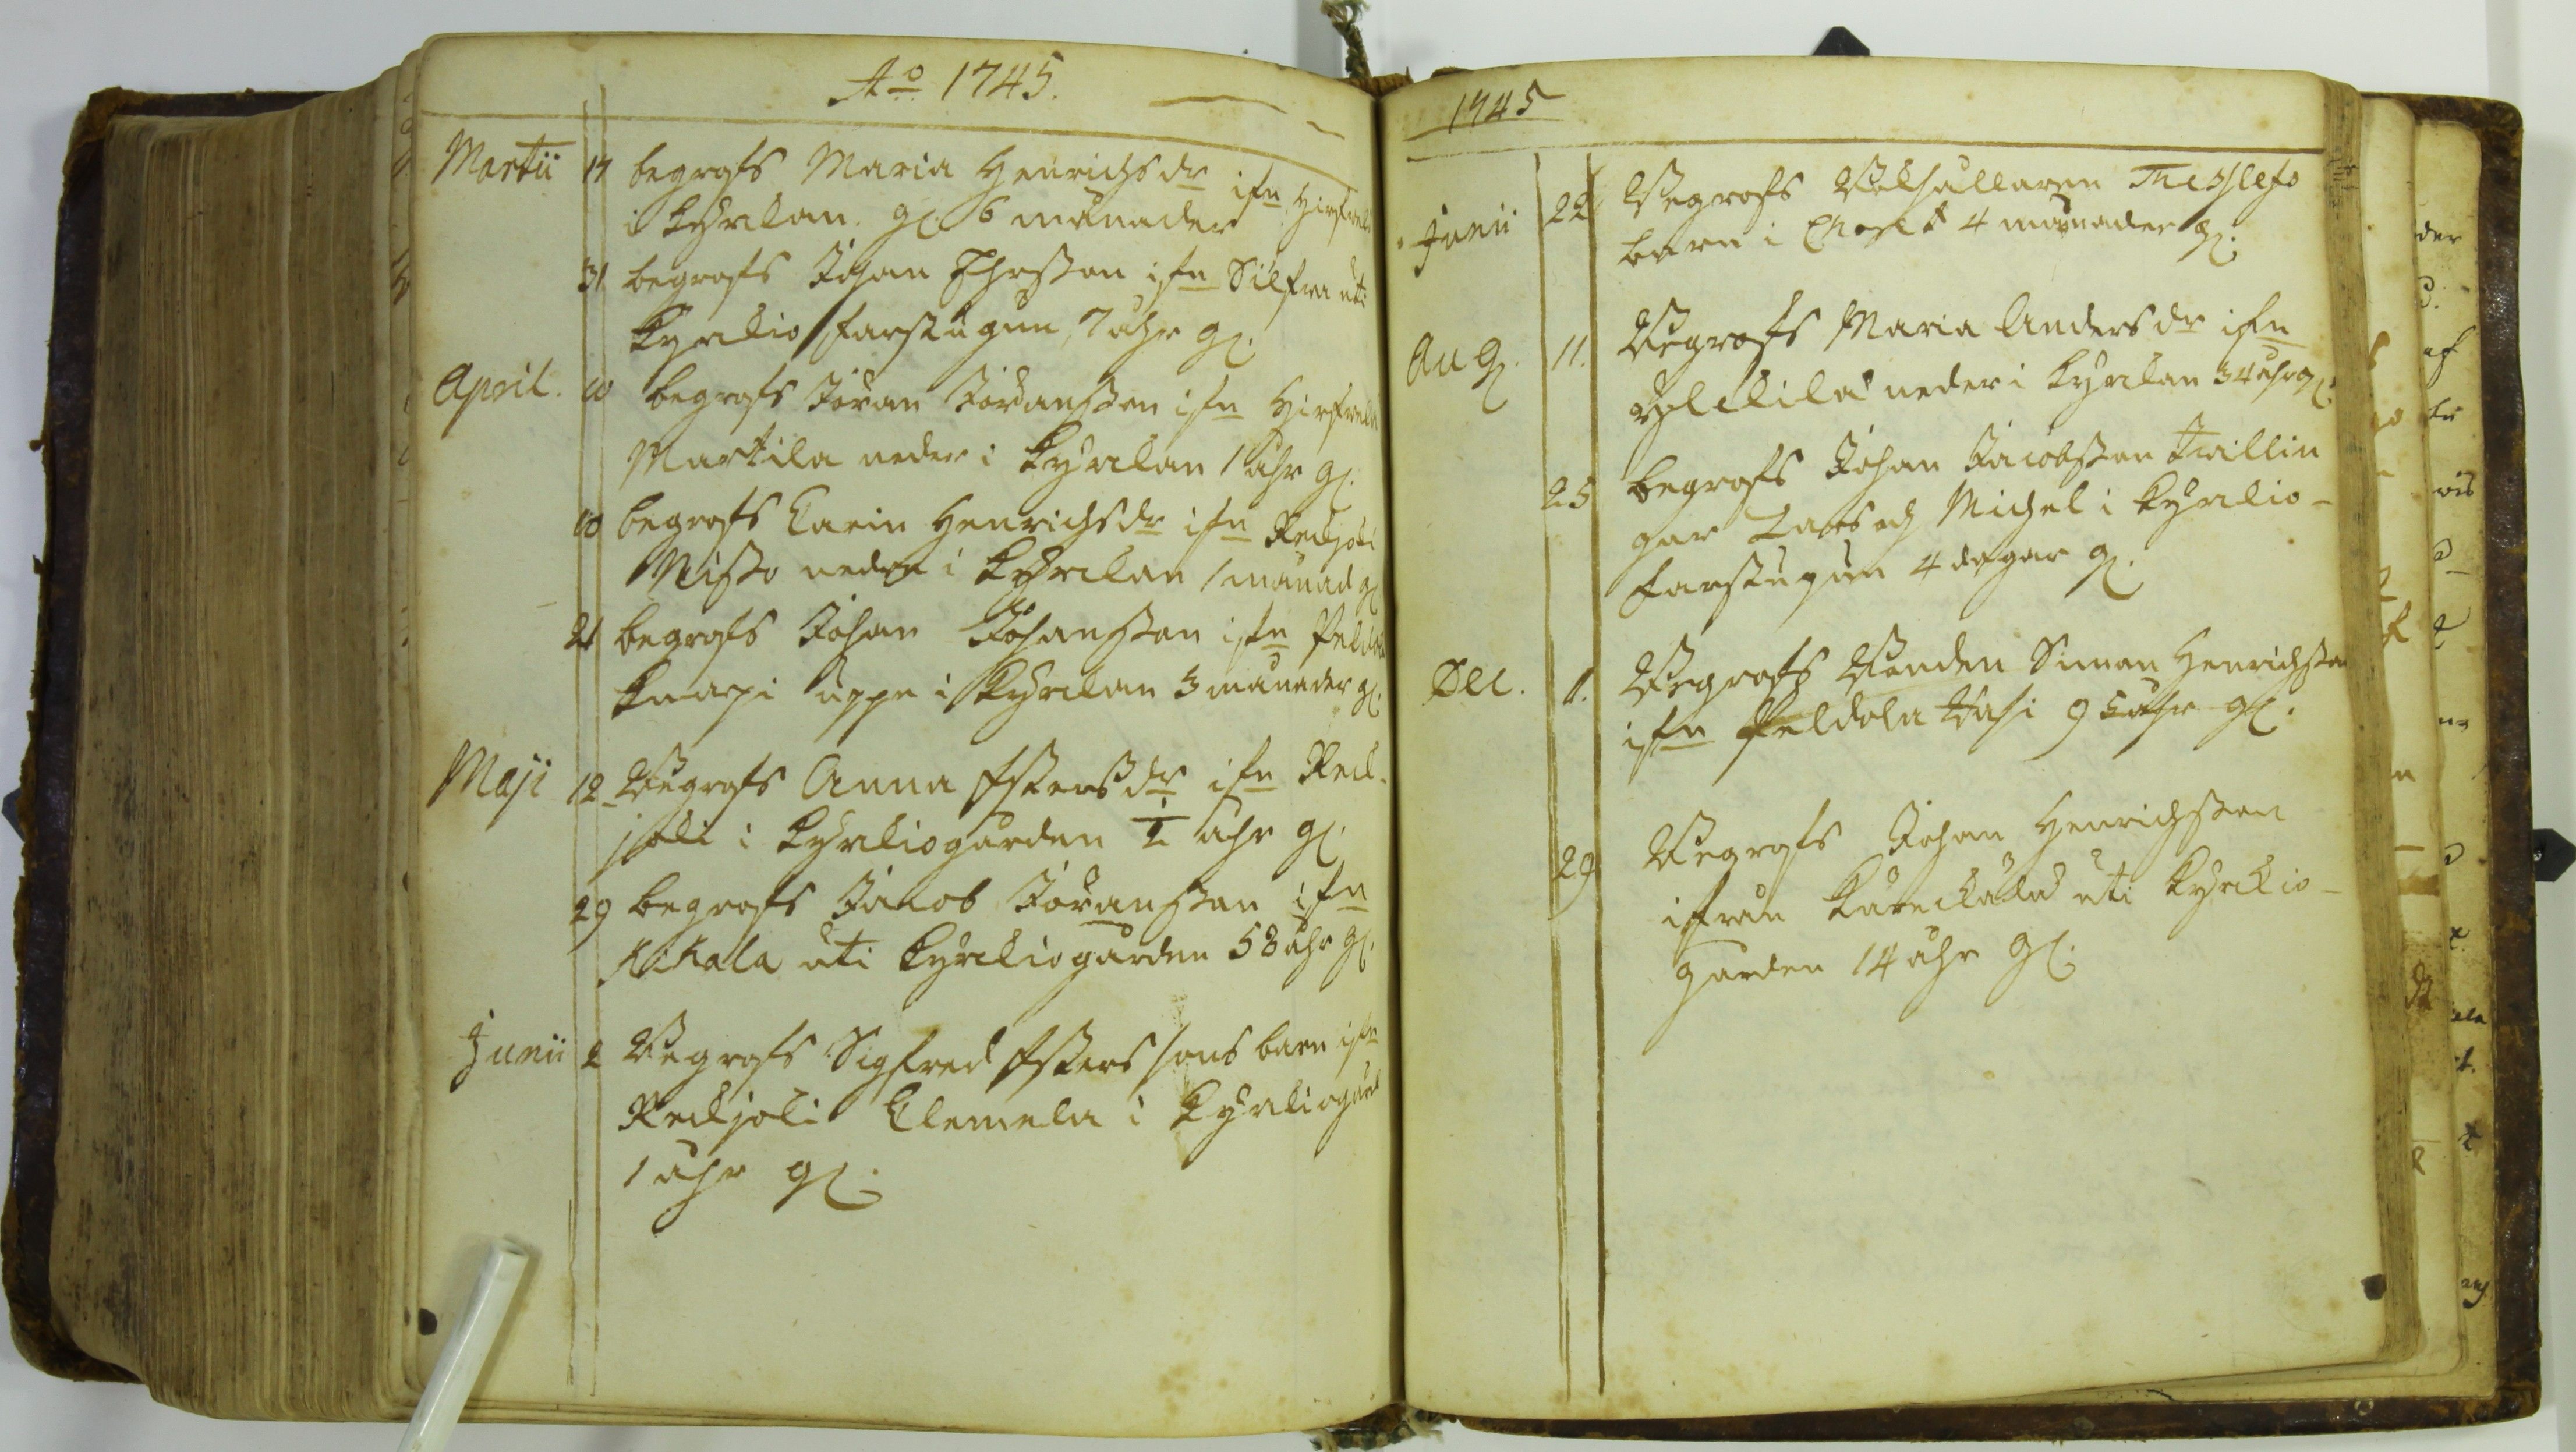 Ao 1745.
Martii 17 begrofs Maria Henrichsdr ifn Hirfwela
i Kyrckan. gl. 6 månader
31 begrofs Johan Ehrsson ifn Silfwa uti
Kyrckio farstugun, 7 åhr gl.
April. 10 begrofs Jöran Jöransson ifn Hirfwela
Martila neder i Kyrckan 1 åhr gl.
10 begrofs Carin Henrichsdr ifn Reckjoki
Nisso neder i Kyrckan 1 månad gl
21 begrofs Johan Johansson ifn Peldola
Knapi uppe i Kyrckan 3 månader gl.
Maji 12 Begrofs Anna Eskersdr ifn Reck-
joki i Kyrckiogården 1/2 åhr gl.
29 begrofs Jacob Jöransson ifn
Kikala uti Kyrckiogården 58 åhr gl.
Junii 2 Begrofs Sigfred Eskers sons barn ifn
Reckjoki Clemela i Kyrckiogård
1 åhr gl.
1745
Junii 22 Begrofs Bokhållaren Theslefs
barn i Choret 4 månader gl.
Aug. 11. Begrofs Maria Andersdr ifn
neder i Kyrckan 34 åhr gl.
25 begrofs Johan Jacobsson Twillin
gar Lars och Michel i Kyrckio-
farstugun 4 dagar gl.
Dec. 1. Begrofs Bonden Simon Henrichsson
ifn Peldola Wasi 95 åhr gl.
29 Begrofs Johan Henrichsson
ifrån uti Kyrckio-
gården 14 åhr gl.